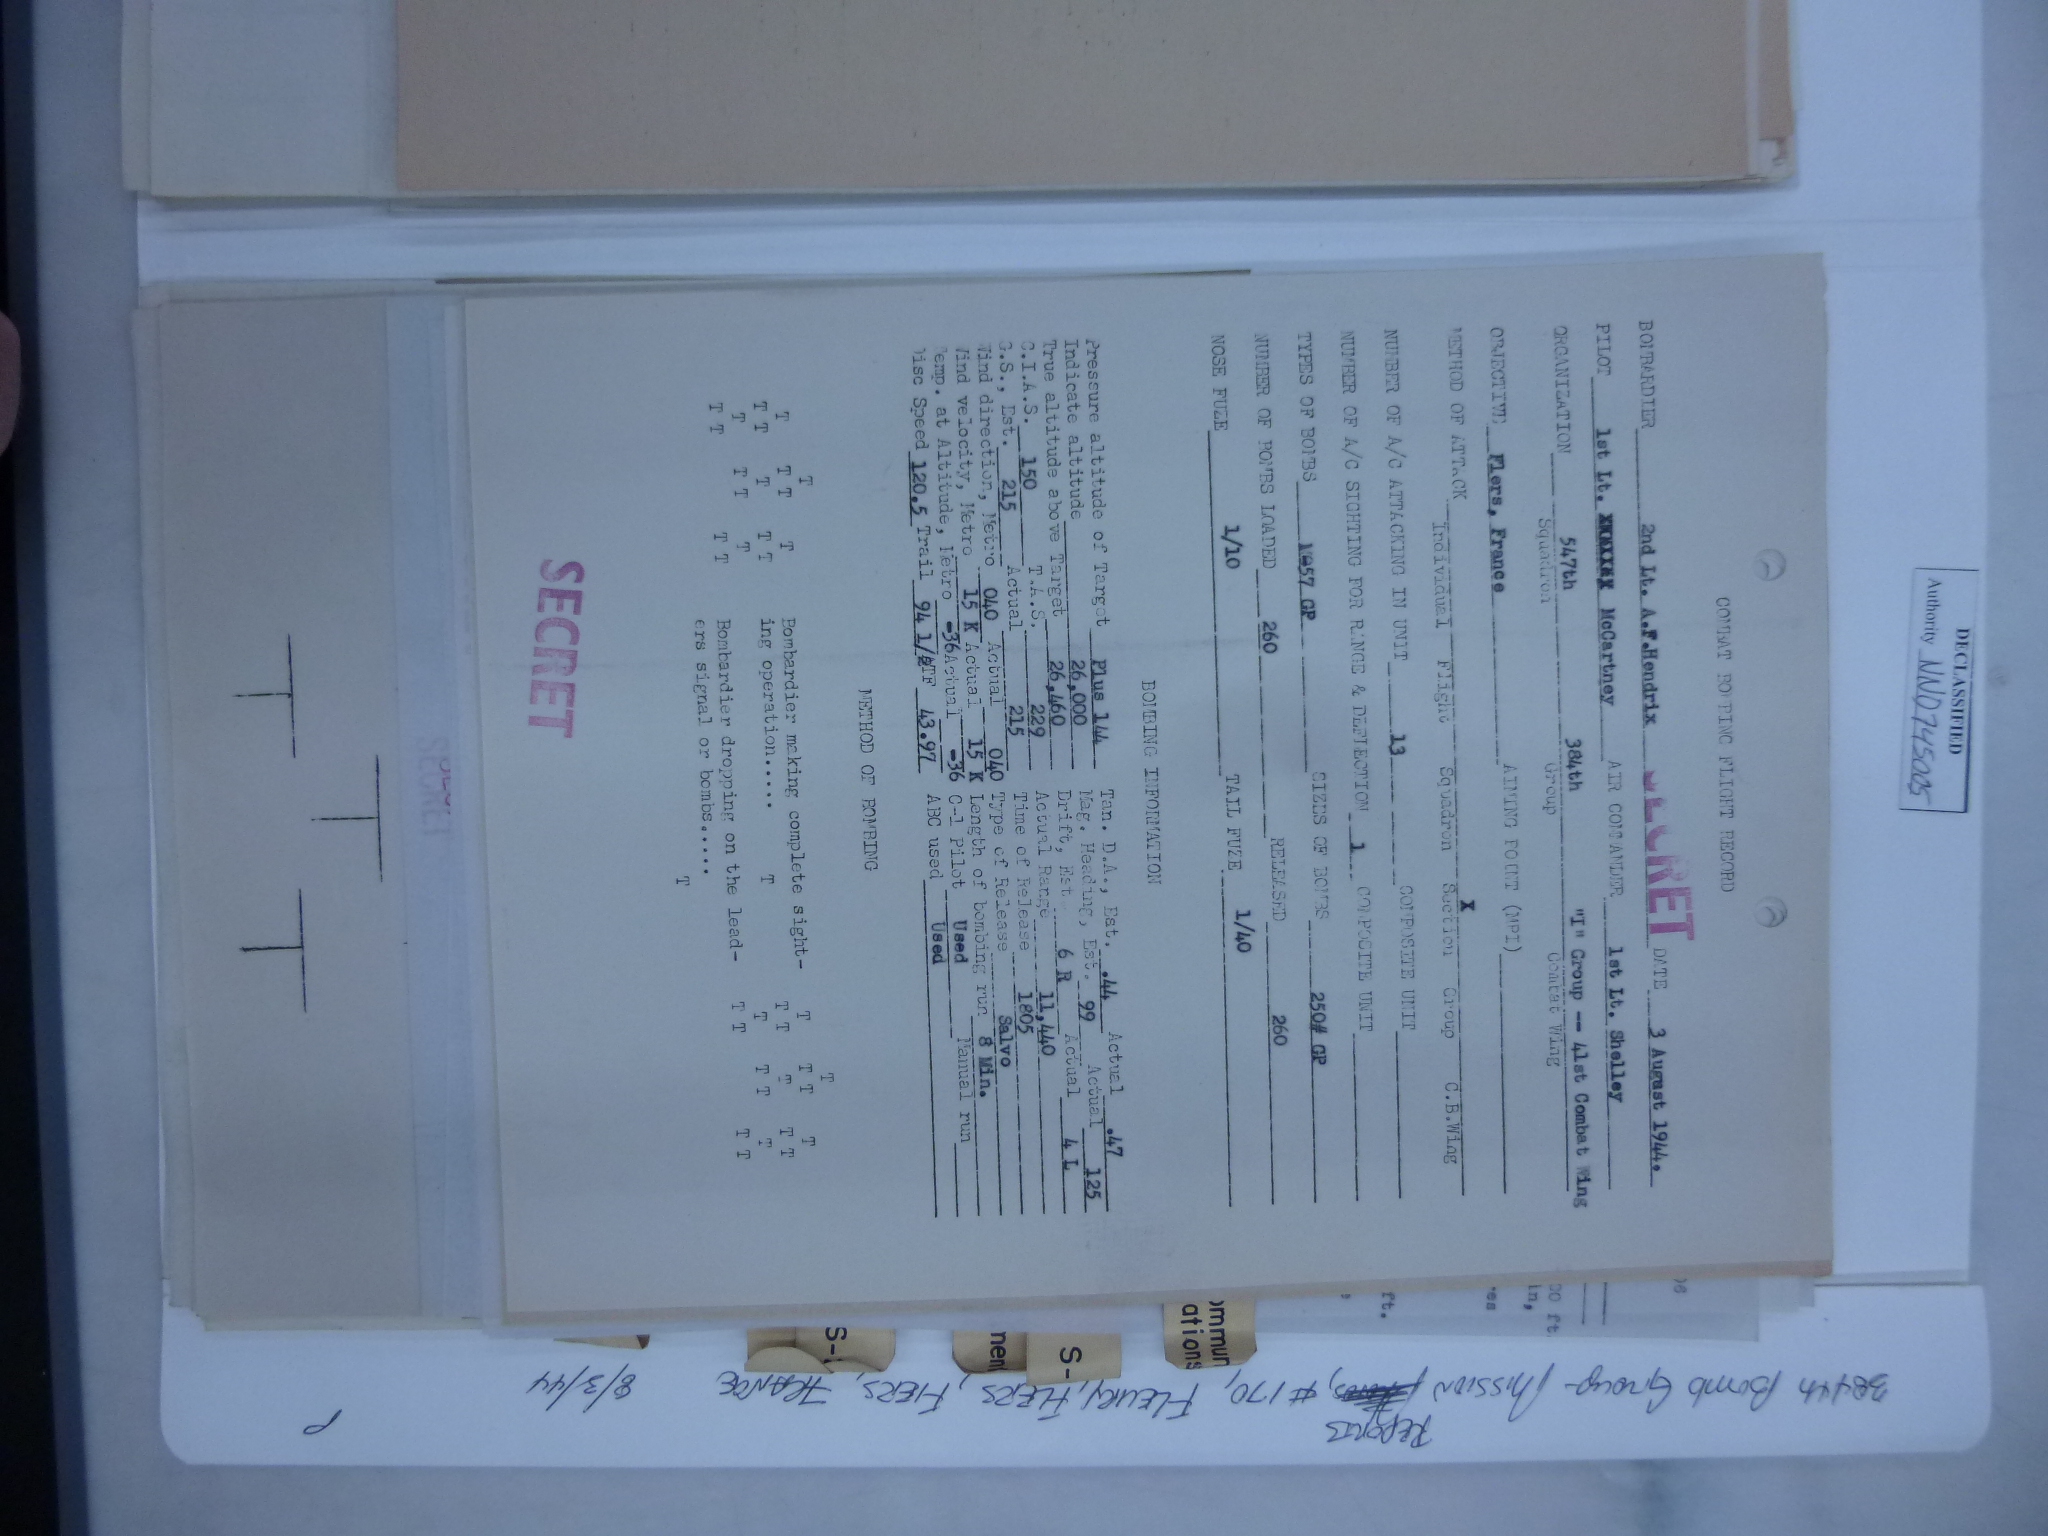 DECLASSIFIED
Authority NND745005
COMBAT BOMBING FLIGHT RECORD
SECRET
BOMBARDIER 2nd Lt. A.F.Hendrix DATE 3 August 1944.
PILOT 1st Lt. XXXXXX McCartney AIR COMMANDER 1st Lt. Shelley
ORGANIZATION 547th 384th "I" Group -- 41st Combat Wing
Squadron Group Combat Wing
OBJECTIVE Flers, France AIMING POINT (MPI)
X
METHOD OF ATTACK Individual Flight Squadron Section Group C.B.Wing
NUMBER OF A/C ATTACKING IN UNIT 13 COMPOSITE UNIT
NUMBER OF A/C SIGHTING FOR RANGE & DEFLECTION 1 COMPOSITE UNIT
TYPES OF BOMBS M57 GP SIZES OF BOMBS 250# GP
NUMBER OF BOMBS LOADED 260 RELEASED 260
NOSE FUZE 1/10 TAIL FUZE 1/40
BOMBING INFORMATION
Pressure altitude of Target Plus 144 Tan. D.A., Est. .44 Actual .47
Indicate altitude 26,000 Mag. Heading, Est. 99 Actual 125
True altitude above Target 26,460 Drift, Est. 6 R Actual 4 L
C.I.A.S. 150 T.A.S. 229 Actual Range 11,440
G.S., Est. 215 Actual 215 Time of Release 1805
Wind direction, Metro 040 Actual 040 Type of Release Salvo
Wind velocity, Metro 15 K Actual 15 K Length of bombing run 8 Min.
Temp. at Altitude, Metro -36 Actual -36 C-1 Pilot Used Manual run
Disc Speed 120.5 Trail 94 1/2 ATF 43.97 ABC used Used
METHOD OF BOMBING
Bombardier making complete sight-
ing operation..... T
Bombardier dropping on the lead-
ers signal or bombs..... T
SECRET
SECRET
384th Bomb Group - Mission Reports, #170, FLEURY, FLERS, FIERS, FRANCE 8/3/44
P
S-
S-
ations
ft.
in,
00 ft